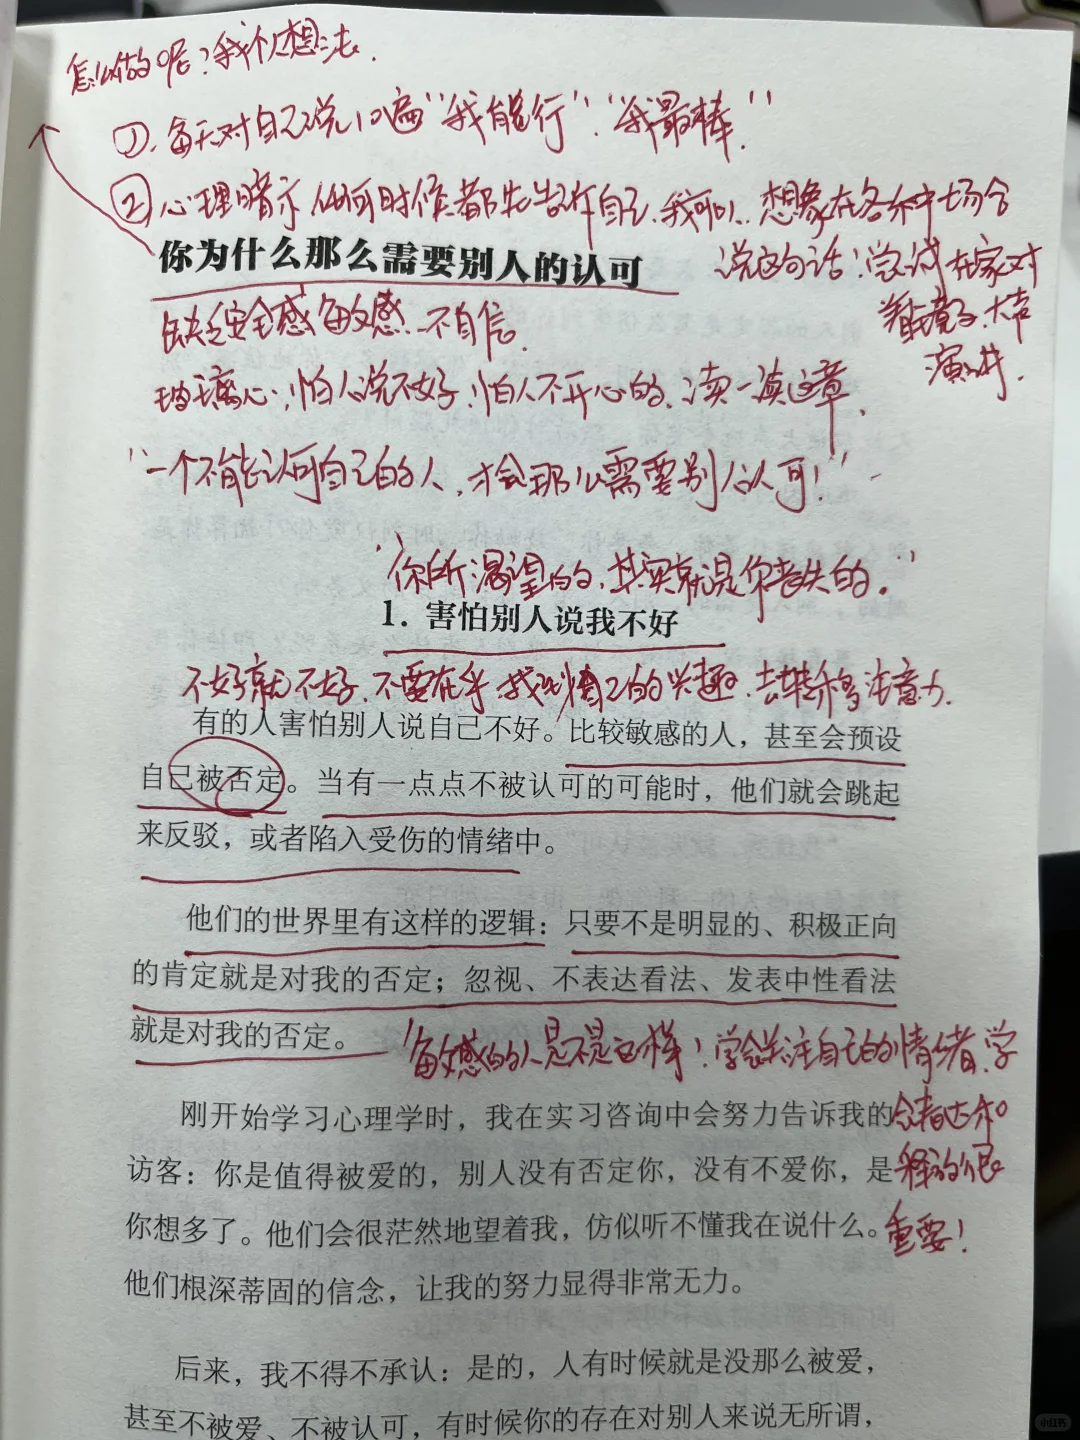 怎么做呢？我个人想法.
①.每天对自己说10遍“我能行”.“我最棒.”
②心理暗示 任何时候都先告诉自己.我可以.想象在各种场合
说这句话！尝试在家对
着镜子.大声
演讲.
你为什么那么需要别人的认可
缺乏安全感 敏感 不自信.
玻璃心；怕人说不好.怕人不开心的.读一读这章.
“一个不能认可自己的人.才会那么需要别人认可！”
“你所渴望的.其实就是你丢失的.”
1. 害怕别人说我不好
不好就不好.不要在乎 找到自己的兴趣.去转移注意力.
有的人害怕别人说自己不好。比较敏感的人，甚至会预设
自己被否定。当有一点点不被认可的可能时，他们就会跳起
来反驳，或者陷入受伤的情绪中。
他们的世界里有这样的逻辑：只要不是明显的、积极正向
的肯定就是对我的否定；忽视、不表达看法、发表中性看法
就是对我的否定。
敏感的人是不是这样！学会关注自己的情绪.学
会表达和
释放很
重要！
刚开始学习心理学时，我在实习咨询中会努力告诉我的
访客：你是值得被爱的，别人没有否定你，没有不爱你，是
你想多了。他们会很茫然地望着我，仿似听不懂我在说什么。
他们根深蒂固的信念，让我的努力显得非常无力。
后来，我不得不承认：是的，人有时候就是没那么被爱，
甚至不被爱、不被认可，有时候你的存在对别人来说无所谓，
小红书